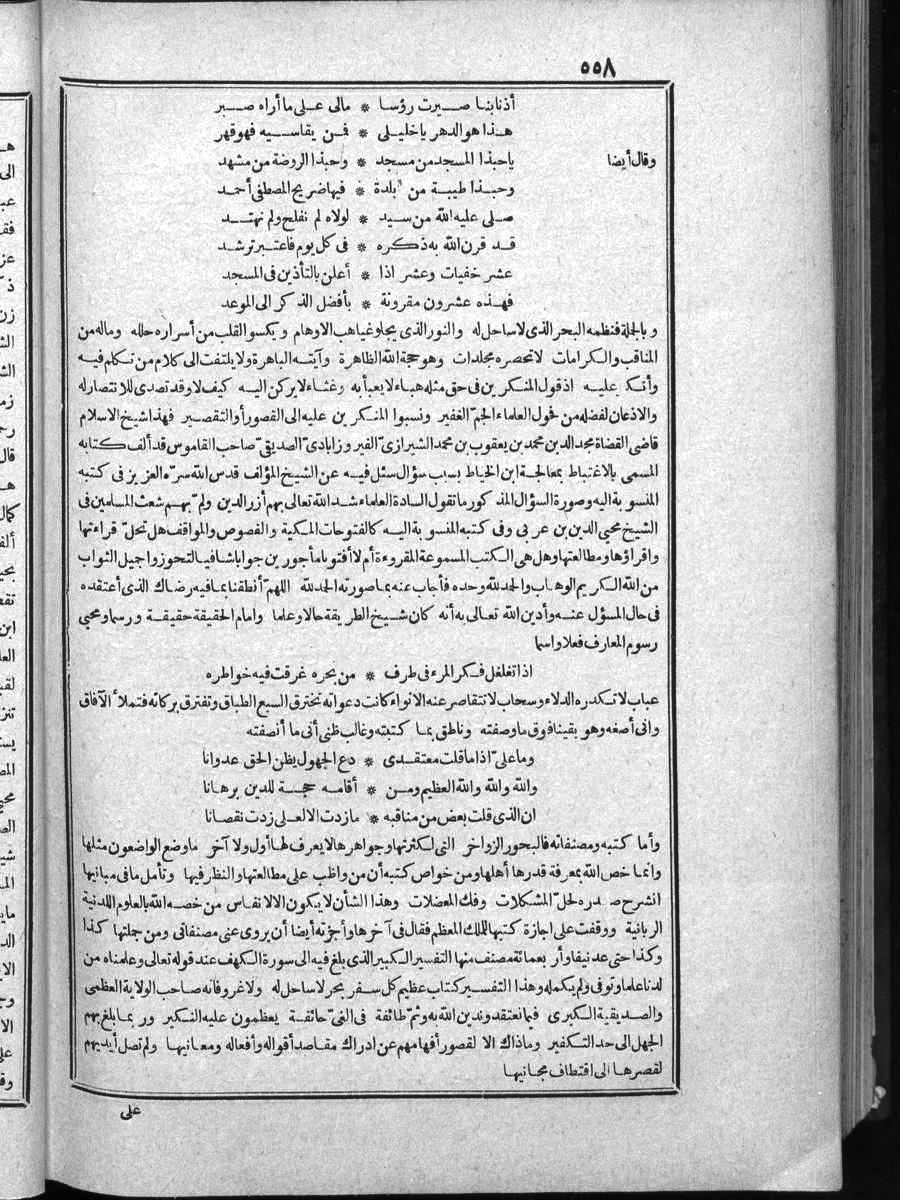 ٥٥٨
أذنابنا صيرت رؤسا * مالى على ما أراه صبر
هذا هو الدهر يا خليلى * فمن يقاسيه فهو قهر
وقال أيضا
ياحبذا المسجد من مسجد * وحبذا الروضة من مشهد
وحبذا طيبة من بلدة * فيها ضريح المصطفى أحمد
صلى عليه الله من سيد * لولاه لم نفلح ولم نهتد
قد قرن الله به ذكره * فى كل يوم فاعتبر ترشد
عشر خفيات وعشر اذا * أعلن بالتأذين فى المسجد
فهذه عشرون مقرونة * بأفضل الذكر الى الموعد
وبالجملة فنظمه البحر الذى لا ساحل له والنور الذى يجلو غياهب الاوهام ويكسو القلب من أسراره حلله وماله من
المناقب والكرامات لا تحصره مجلدات وهو حجة الله الظاهرة وآيته الباهرة ولا يلتفت الى كلام من تكلم فيه
وأنكر عليه اذ قول المنكرين فى حق مثله هباء لا يعبأ به وغثاء لا يركن اليه كيف لا وقد تصدى للانتصار له
والاذعان لفضله من فحول العلماء الجم الغفير ونسبوا المنكرين عليه الى القصور أو التقصير فهذا شيخ الاسلام
قاضى القضاة مجد الدين محمد بن يعقوب بن محمد الشيرازى الفيروزابادى الصديقى صاحب القاموس قد ألف كتابه
المسمى بالاغتباط بمعالجة ابن الخياط بسبب سؤال سئل فيه عن الشيخ المؤلف قدس الله سره العزيز فى كتبه
المنسوبة اليه وصورة السؤال المذكور ما تقول السادة العلماء شد الله تعالى بهم أزر الدين ولم بهم شعث المسلمين فى
الشيخ محيى الدين بن عربى وفى كتبه المنسوبة اليه كالفتوحات المكية والفصوص والمواقف هل تحل قراءتها
واقراؤها ومطالعتها وهل هى الكتب المسموعة المقروءة أم لا أفتونا مأجورين جوابا شافيا لتحوزوا جميل الثواب
من الله الكريم الوهاب والحمد لله وحده فأجاب عنه بما صورته الحمد لله اللهم أنطقنا بما فيه رضاك الذى أعتقده
فى حال المسؤل عنه وأدين الله تعالى به أنه كان شيخ الطريقة حالا وعلما وامام الحقيقة حقيقة ورسما ومحيى
رسوم المعارف فعلا واسما
اذا تغلغل فكر المرء فى طرف * من بحره غرقت فيه خواطره
عباب لا تكدره الدلاء وسحاب لا تتقاصر عنه الانواء كانت دعواته تخترق السبع الطباق وتفترق بركاته فتملأ الآفاق
وانى أصفه وهو يقينا فوق ما وصفته وناطق بما كتبته وغالب ظنى أنى ما أنصفته
وما على اذا ما قلت معتقدى * دع الجهول يظن الحق عدوانا
والله والله والله العظيم ومن * أقامه حجة للدين برهانا
ان الذى قلت بعض من مناقبه * ما زدت الا لعلى زدت نقصانا
وأما كتبه ومصنفاته فالبحور الزواخر التى لكثرتها وجواهرها لا يعرف لها أول ولا آخر ما وضع الواضعون مثلها
وانما خص الله بمعرفة قدرها أهلها ومن خواص كتبه أن من واظب على مطالعتها والنظر فيها وتأمل ما فى مبانيها
انشرح صدره لحل المشكلات وفك المعضلات وهذا الشأن لا يكون الا لانفاس من خصه الله بالعلوم اللدنية
الربانية ووقفت على اجازة كتبها للملك المعظم فقال فى آخرها وأجزته أيضا أن يروى عنى مصنفاتى ومن جملتها كذا
وكذا حتى عد نيفا وأربعمائة مصنف منها التفسير الكبير الذى بلغ فيه الى سورة الكهف عند قوله تعالى وعلمناه من
لدنا علما وتوفى ولم يكمله وهذا التفسير كتاب عظيم كل سفر بحر لا ساحل له ولا غرو فانه صاحب الولاية العظمى
والصديقية الكبرى فيما نعتقد وندين الله به وثم طائفة فى الغى حائقة يعظمون عليه النكير وربما بلغ بهم
الجهل الى حد التكفير وماذاك الا لقصور أفهامهم عن ادراك مقاصد أقواله وأفعاله ومعانيها ولم تصل أيديهم
لقصرها الى اقتطاف مجانيها
على